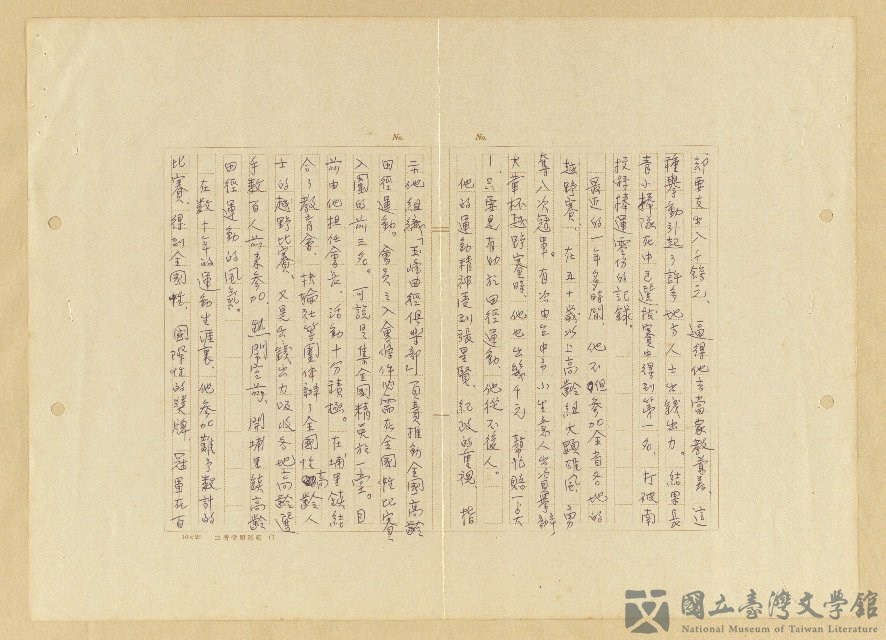 却要支出八千餘元，逼得他去當家教養差，這
種舉動引起了許多地方人士出錢出力。結果長
青少棒隊在中區選拔賽中得到第一名，打破南
投縣棒運零份的記錄。
最近的一年多時間，他不但參加全省各地的
越野賽，在五十歲以上高齡組大顯雄風，勇
奪八次冠軍。有次由台中市小生意人出資舉辦
大葉杯越野賽時，他也出幾千元幫忙賠一
！只要是有助於田徑運動，他從不後人。
他的運動精神受到張星賢、紀政的重視，指
示他組織「玉峰田徑俱樂部」負責推動全國高齡
田徑運動。會員之入會條件必需在全國性比賽
入圍的前三名。可說是集全國精英於一堂。目
前由他担任會長，活動十分積極。在埔里鎮結
合了教育會、扶輪社等團体辦了全國性高齡人
士的越野比賽，又是出錢出力吸收各地高齡選
手數百人前來參加，開埔里鎮高齡
田徑運動的風氣。
在數十年的運動生涯裏，他參加難予數計的
比賽，得到全國性、國際性的獎牌，冠軍在百
No.
No.
10×20
國立臺灣文學館
National Museum of Taiwan Literature